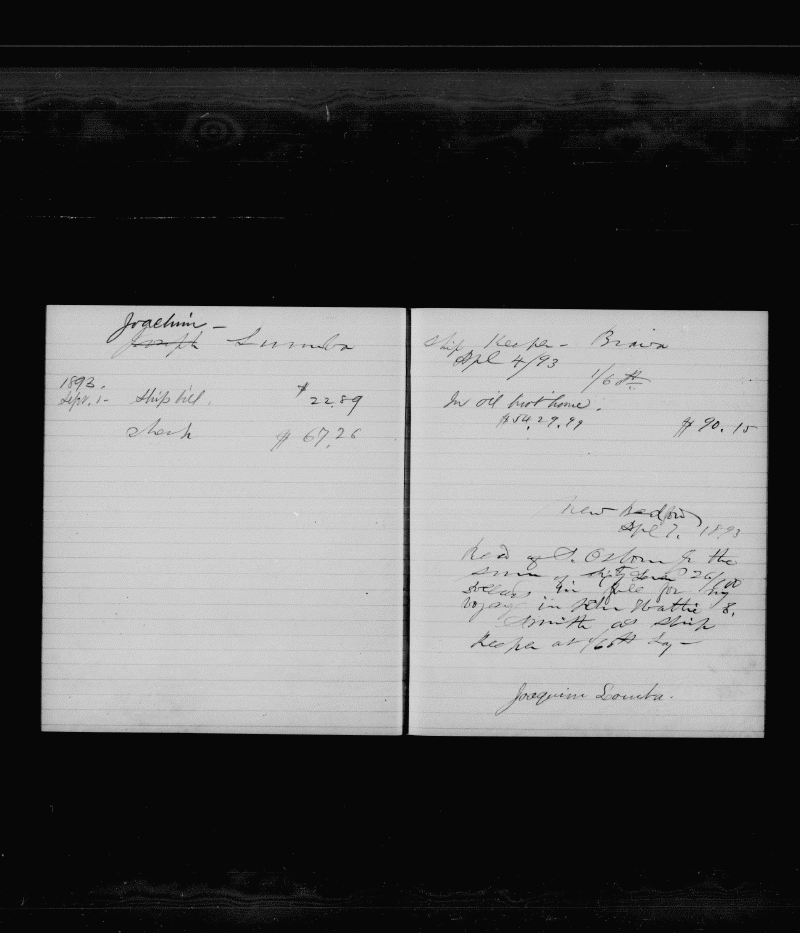 Joachim -
Joseph Lumba
1893.
Sept. 1 - Ship bill. $ 22.89
check $ 67.26
Ship Keeper - Brava
Apl 4/93
1/60th
In oil brot home.
$54,29.99 $90.15
New Bedford
Apl 7. 1893
Recd of S. Osborn Jr the
sum of sixty seven 26/100
dollars in full for my
voyage in Schr Hattie E.
Smith as Ship
Keeper at 1/60th lay -
Joaquim Lomba.